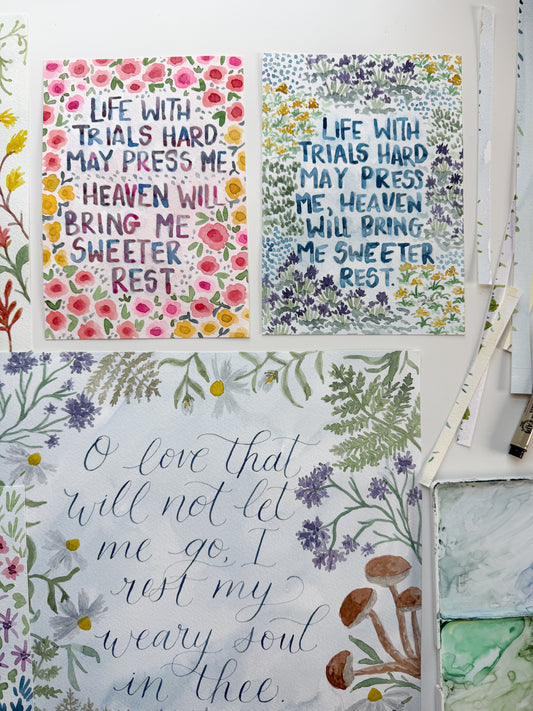 LIFE WITH
TRIALS HARD
MAY PRESS ME,
HEAVEN WILL
BRING ME
SWEETER
REST
LIFE WITH
TRIALS HARD
MAY PRESS
ME, HEAVEN
WILL BRING
ME SWEETER
REST.
O love that
will not let
me go, I
rest my
weary soul
in thee.